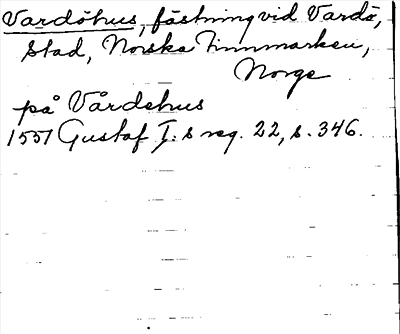 Vardöhus, fästning vid Vardö,
stad, Norska Finnmarken,
Norge
på Vårdehus
1551 Gustaf I:s reg. 22, s. 346.